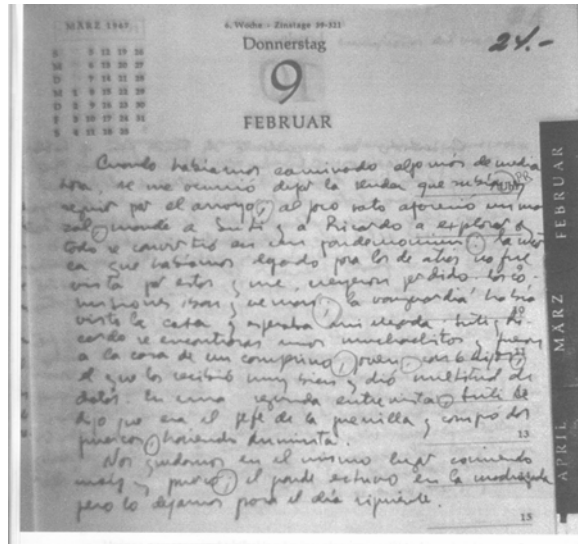 MÄRZ 1967
S 5 12 19 26
M 6 13 20 27
D 7 14 21 28
M 1 8 15 22 29
D 2 9 16 23 30
F 3 10 17 24 31
S 4 11 18 25
6. Woche - Zinstage 39-321
Donnerstag
9
FEBRUAR
24.-
Cuando habíamos caminado algo mas de media
hora, se me ocurrió dejar la senda que subía y
seguir por el arroyo; al poco rato apareció un mai
zal; mande a Inti y a Ricardo a explorar y
todo se convirtió en un pandemonium: la mar
ca que habíamos dejado para los de atras no fue
vista por estos y me creyeron perdido. Las
misiones iban y venian; la vanguardia había
visto la casa y esperaba mi llegada. Inti y Ri
cardo se encontraron unos muchachitos y fueron
a la casa de un campesino, joven, con 6 hijos,
el que los recibió muy bien y dió multitud de
datos. En una segunda entrevista, Inti le
dijo que era el jefe de la guerrilla y compró dos
puercos, haciendo huminta.
Nos quedamos en el mismo lugar comiendo
maiz y puerco; el ponche estuvo en la madrugada
pero lo dejamos para el día siguiente.
13
15
FEBRUAR
MÄRZ
APRIL